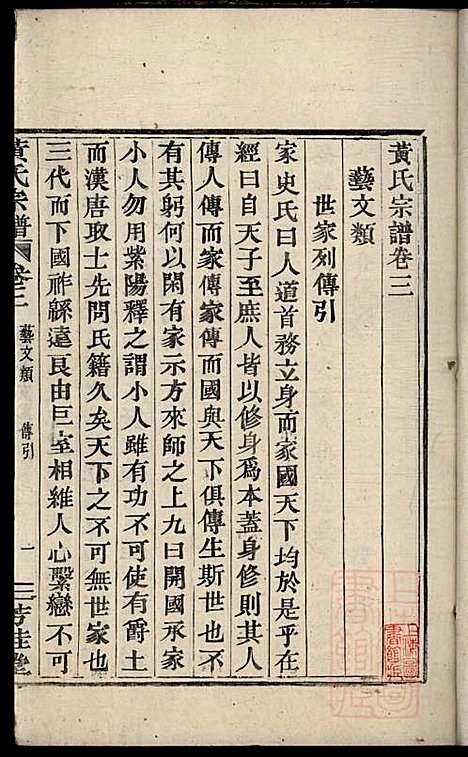 黃氏宗譜卷三
藝文類
世家列傳引
家史氏曰人道首務立身而家國天下均於是乎在
經曰自天子至於庶人皆以修身爲本蓋身修則其人
傳人傳而家傳家傳而國與天下俱傳生斯世也不
有其躬何以閑有家示方來師之上九曰開國承家
小人勿用紫陽釋之謂小人雖有功不可使有爵土
而漢唐取士先問氏籍久矣天下之不可無世家也
三代而下國祚緜遠良由巨室相維人心繫戀不可
黃氏宗譜
卷三
藝文類
傳引
一
芳桂堂
上海圖書館藏